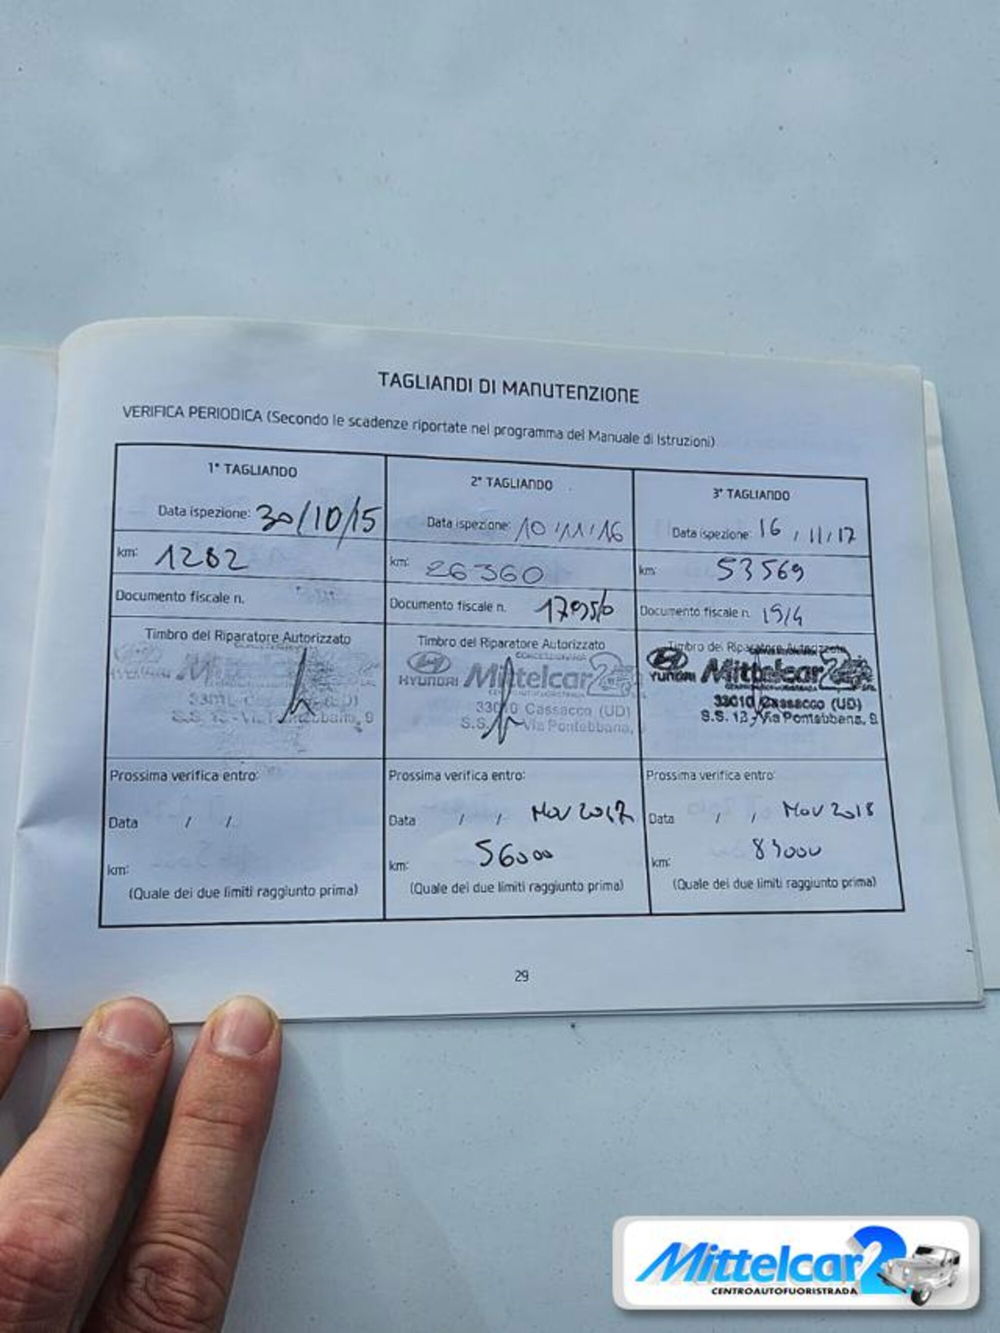 TAGLIANDI DI MANUTENZIONE
VERIFICA PERIODICA (Secondo le scadenze riportate nel programma del Manuale di Istruzioni)
1° TAGLIANDO
Data ispezione: 30/10/15
km: 1282
Documento fiscale n.
Timbro del Riparatore Autorizzato
HYUNDAI Mittelcar
S.S. 13 - Via Pontebbana, 9
Prossima verifica entro:
Data / /
km:
(Quale dei due limiti raggiunto prima)
2° TAGLIANDO
Data ispezione: 10/11/16
km: 26360
Documento fiscale n.
Timbro del Riparatore Autorizzato
CONCESSIONARIA
HYUNDAI Mittelcar2
CENTROAUTOFUORISTRADA
33010 Cassacco (UD)
S.S. Via Pontebbana,
Prossima verifica entro:
Data / / Nov 2017
km: 56000
(Quale dei due limiti raggiunto prima)
3° TAGLIANDO
Data ispezione: 16/11/17
km: 53569
Documento fiscale n. 19/4
Timbro del Riparatore Autorizzato
HYUNDAI Mittelcar2
CENTROAUTOFUORISTRADA
33010 Cassacco (UD)
S.S. 13 - Via Pontebbana, 9
Prossima verifica entro:
Data / / Nov 2018
km: 83000
(Quale dei due limiti raggiunto prima)
29
Mittelcar2
CENTROAUTOFUORISTRADA